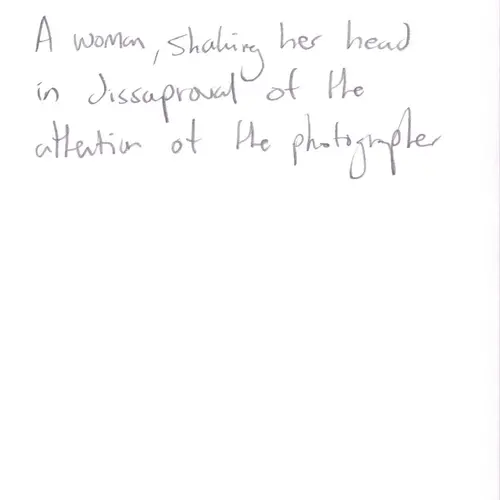 A woman, shaking her head
in dissaproval of the
attention of the photographer